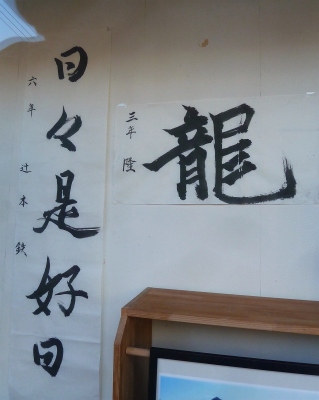 龍
三年 隆
日々是好日
六年 辻本 鉄